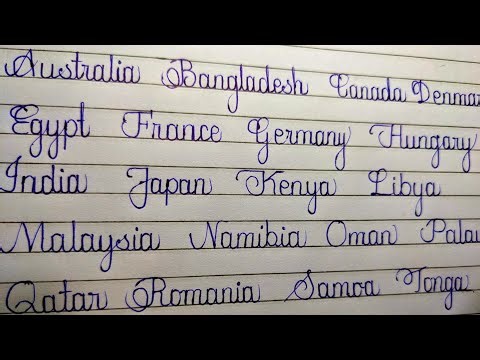 Australia Bangladesh Canada Denmar
Egypt France Germany Hungary
India Japan Kenya Libya
Malaysia Namibia Oman Palau
Qatar Romania Samoa Tonga